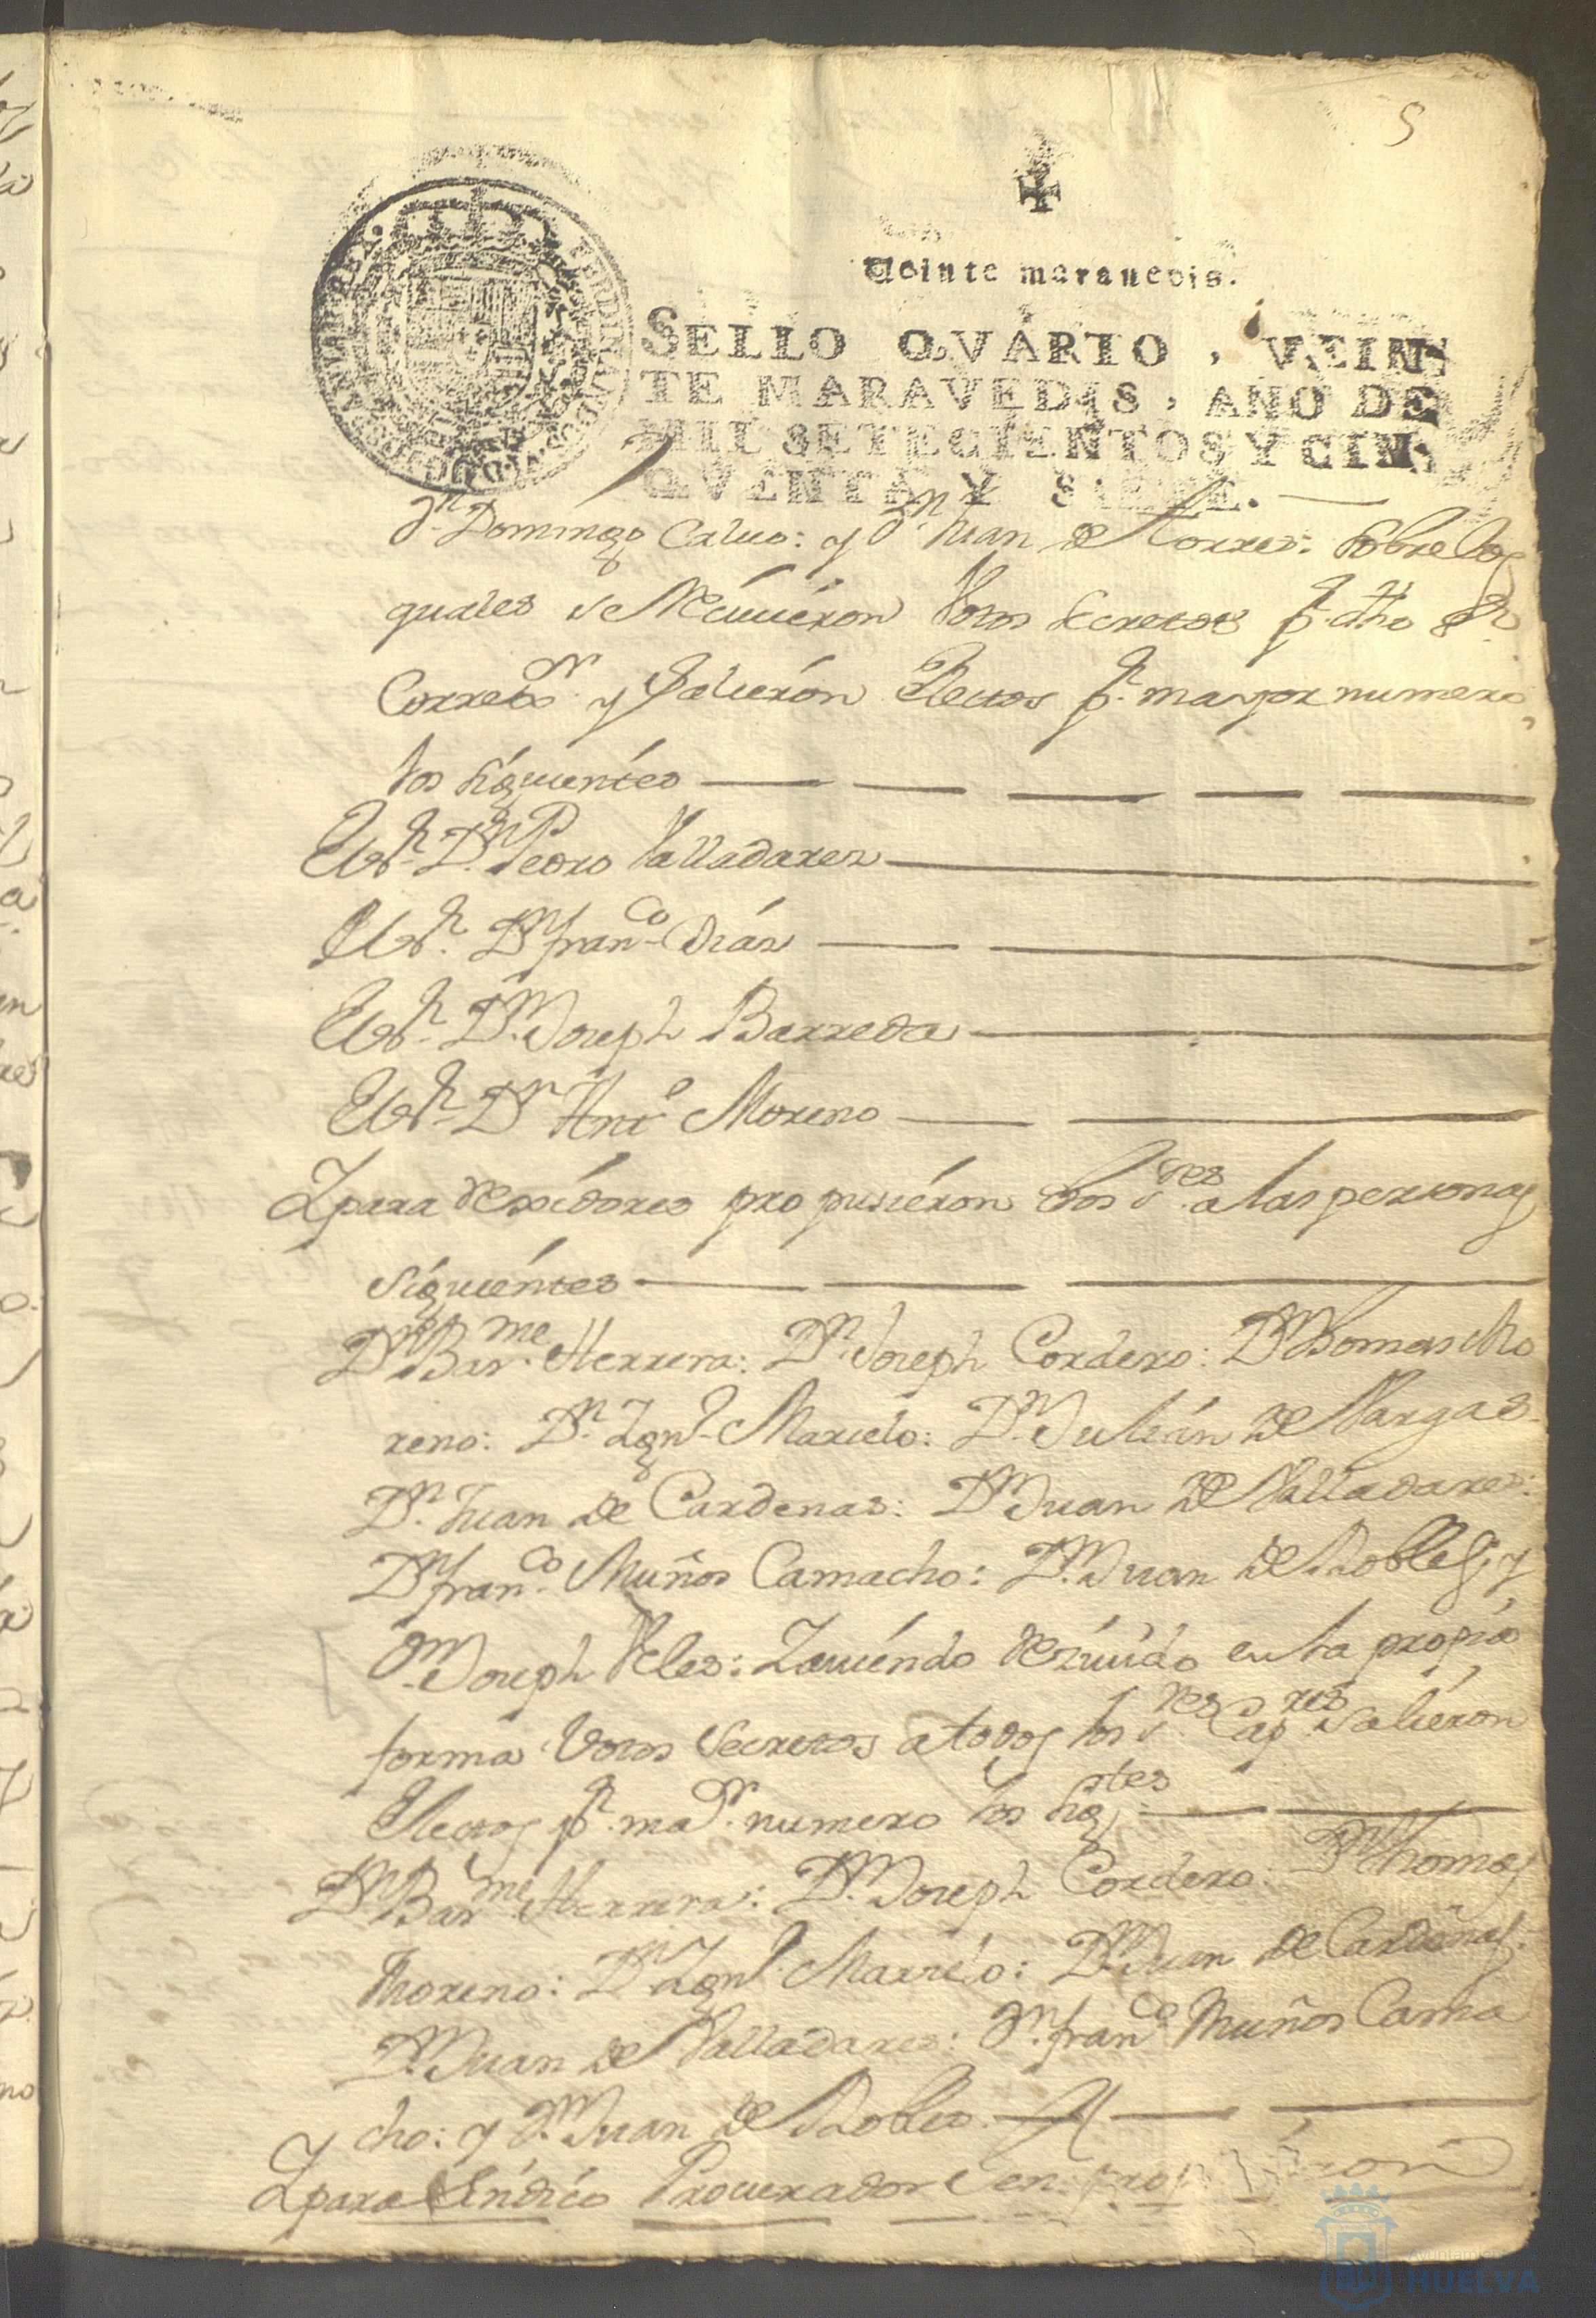 5
Veinte maravedis.
SELLO QVARTO, VEIN-
TE MARAVEDIS, AÑO DE
MIL SETECIENTOS Y CIN-
QVENTA Y SIETE.
Dn. Domingo Calvo: y Dn. Juan de Torres: sobre los
quales se Recivieron Votos secretos pr. dho Sr.
Corregor. y Salieron Electos pr. mayor numero
los siguientes
Dn. Pedro Valladares
Dn. Franco. Días
Dn. Joseph Barreda
Dn. Anto. Moreno
Y para Rexidores propusieron dhos Sres. a las personas
siguientes
Dn. Barme. Herrera: Dn. Joseph Cordero: Dn. Thomas Mo
reno: Dn. Ygnl. Marcelo: Dn. Julián de Vargas
Dn. Juan de Cardenas: Dn. Juan de Valladares:
Dn. Franco. Muños Camacho: Dn. Juan de Robles: y
Dn. Joseph Veles: Y aviendo Rezivido en la propia
forma Votos Secretos a todos los Sres. Capres. salieron
Electos pr. maor. numero los sigtes.
Dn. Barme. Herrera: Dn. Joseph Cordero: Dn. Thomas
Moreno: Dn. Ygnl. Marcelo: Dn. Juan de Cardenas:
Dn. Juan de Valladares: Dn. Franco. Muños Cama
cho: y Dn. Juan de Robles.
Y para Síndico Procurador Gen.
Ayuntamiento de
HUELVA